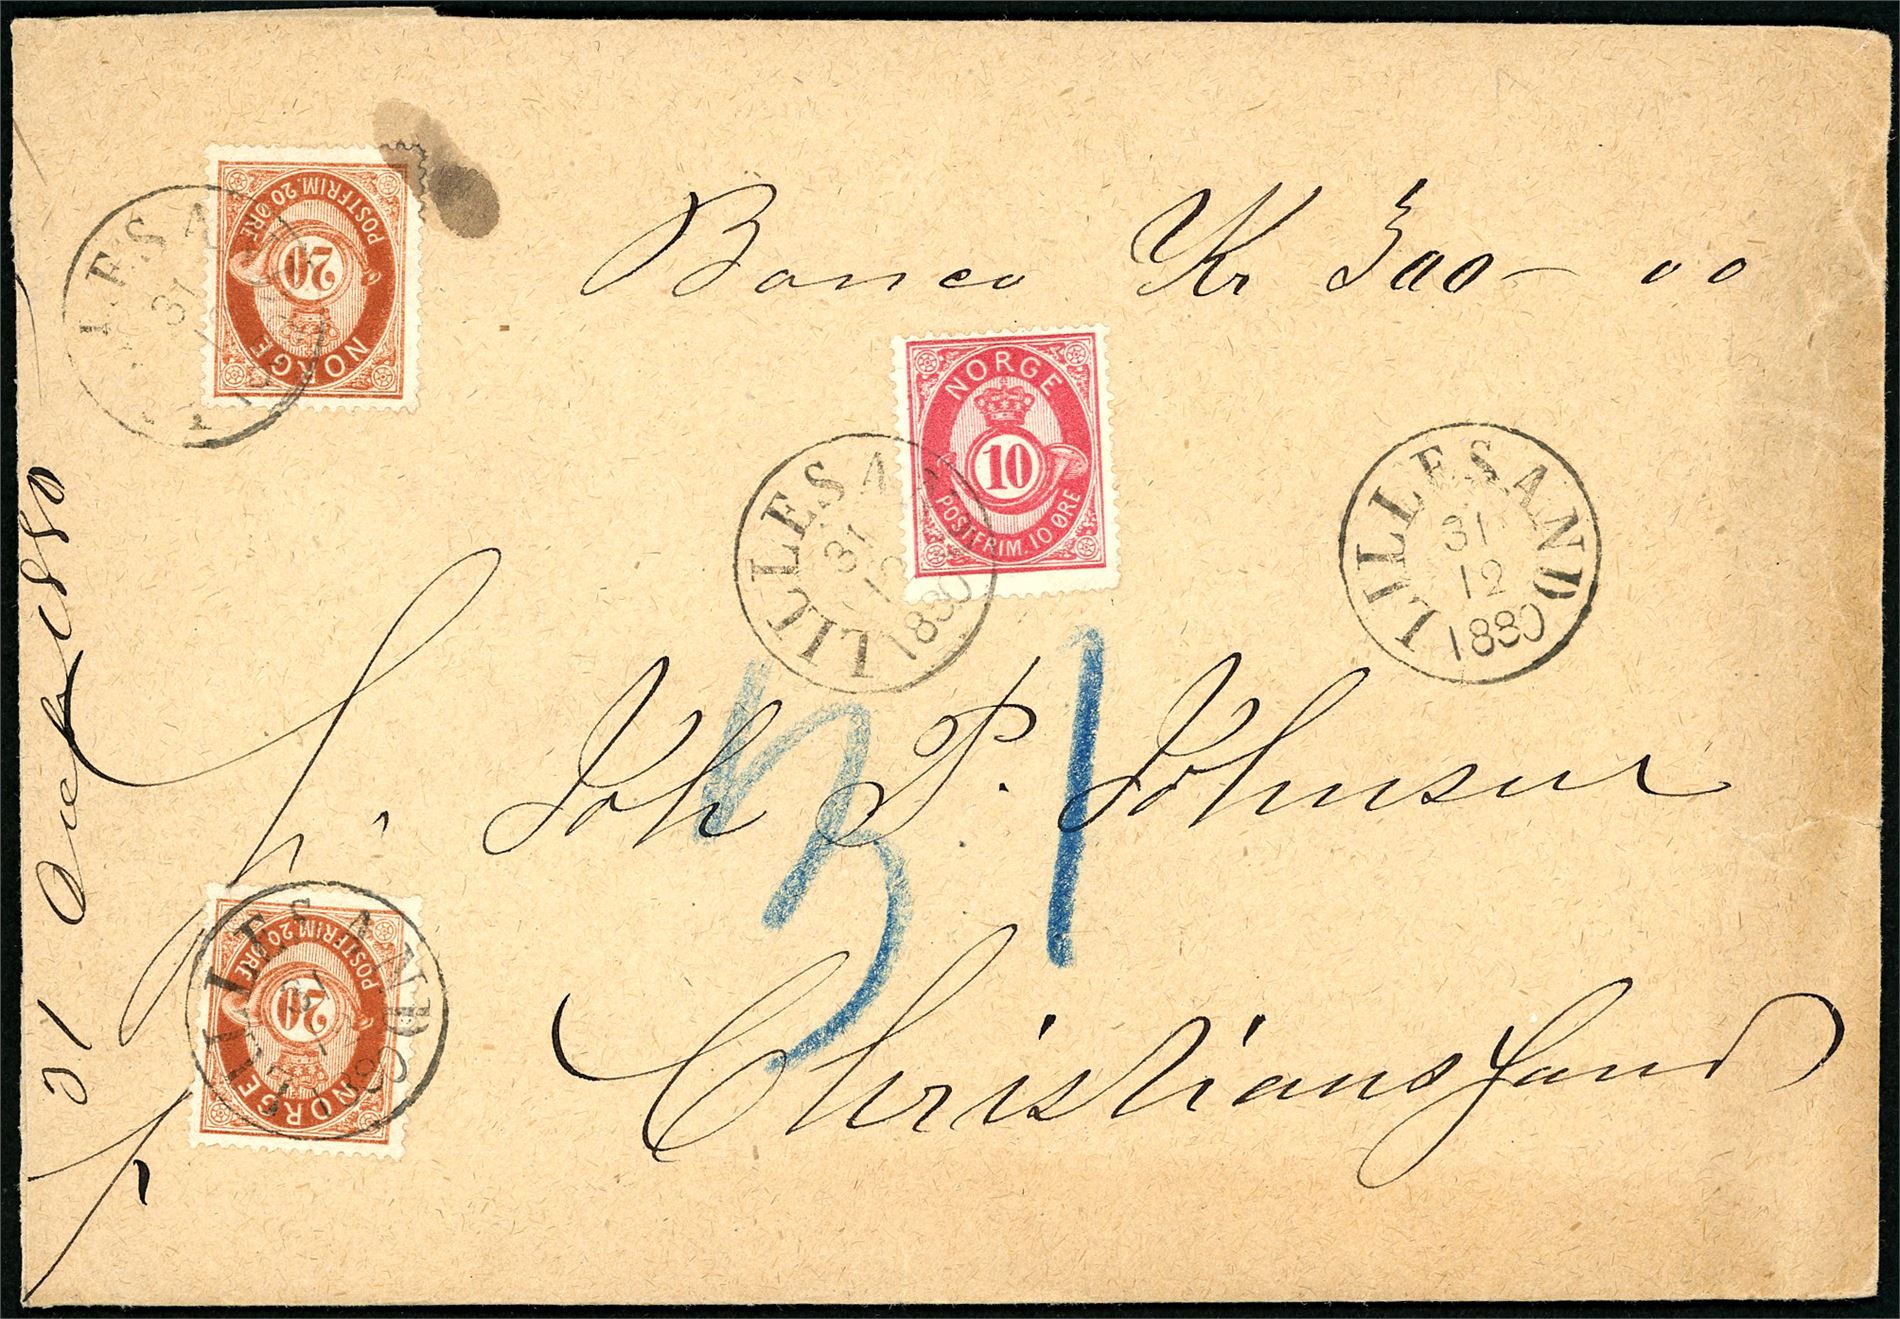 Banco Kr 300 - 00
NORGE
10
POSTFRIM. 10 ØRE
POSTFRIM. 20 ØRE
20
NORGE
LILLESAND
31
12
1880
LILLESAND
31
12
1880
Joh P. Johnsen
31
Christianssand
POSTFRIM. 20 ØRE
20
NORGE
LILLESAND
31
1880